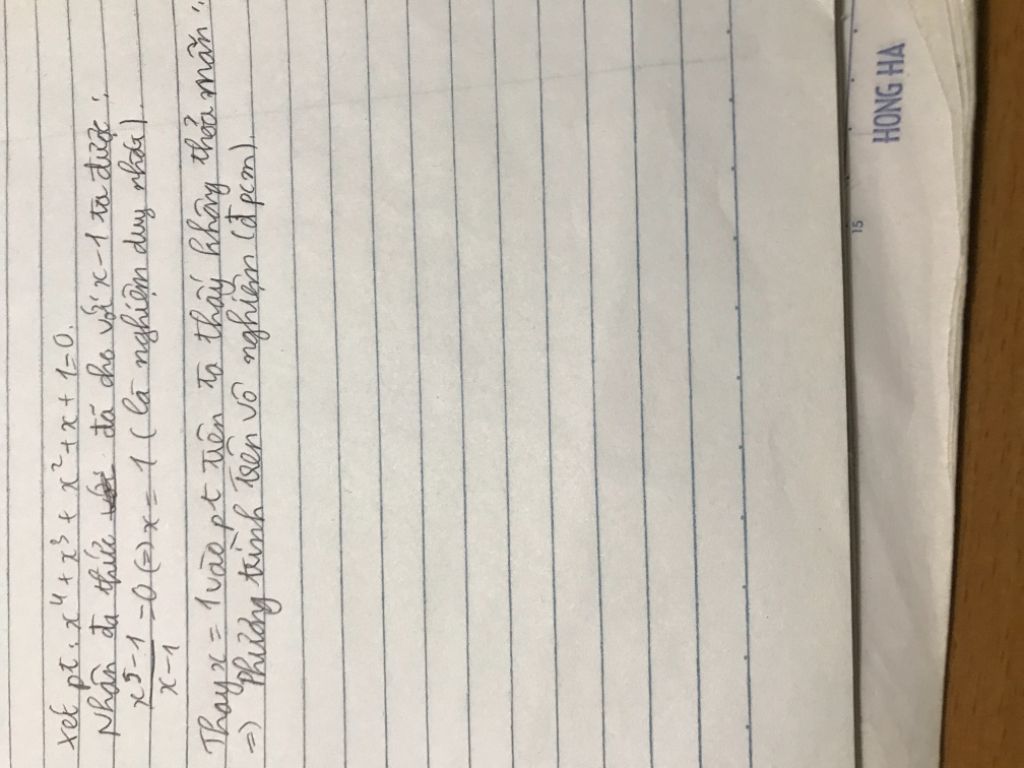 Xét pt: x⁴ + x³ + x² + x + 1 = 0.
Nhân đa thức đã cho với x - 1 ta được:
x⁵ - 1 / x - 1 = 0 (=) x = 1 (là nghiệm duy nhất)
Thay x = 1 vào pt trên ta thấy không thỏa mãn.
=) Phương trình trên vô nghiệm (đpcm).
15
HONG HA